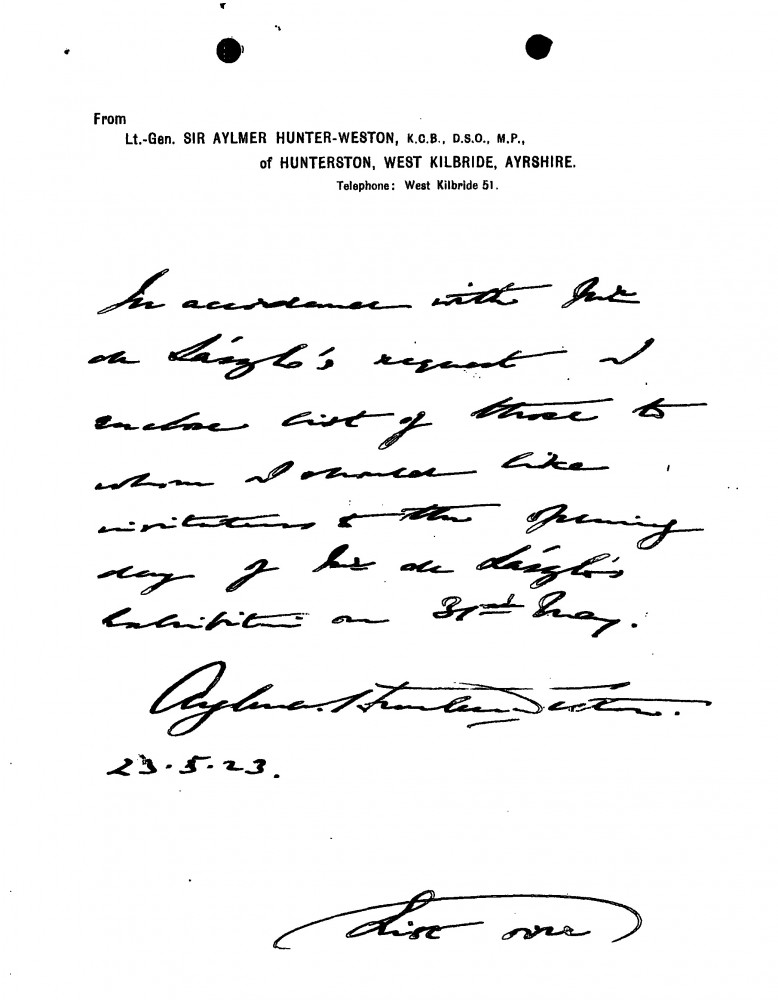 From
Lt.-Gen. SIR AYLMER HUNTER-WESTON, K.C.B., D.S.O., M.P.,
of HUNTERSTON, WEST KILBRIDE, AYRSHIRE.
Telephone: West Kilbride 51.
In accordance with Mr
de László's request I
enclose list of those to
whom I should like
invitations to the opening
day of Mr de László's
Exhibition on 31st May.
Aylmer Hunter-Weston.
23.5.23.
List over